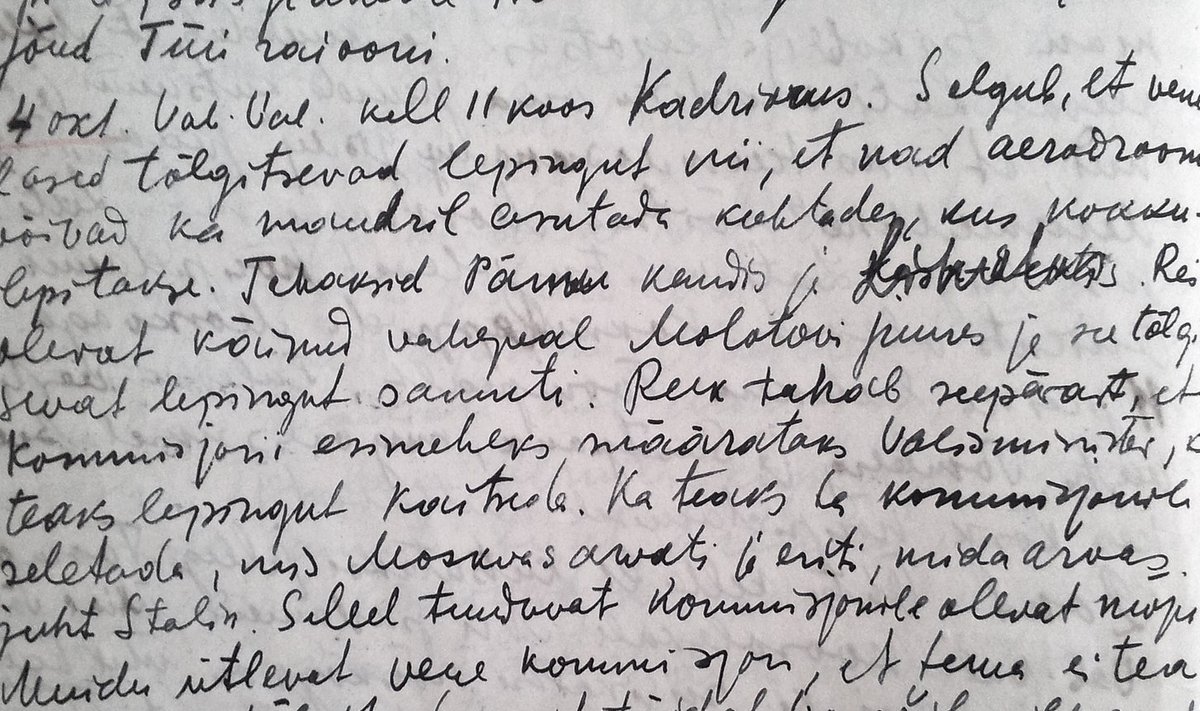 jõud Türi raiooni.
4 okt. Vab. Val. kell 11 koos Kadriorus. Selgub, et vene
lased tõlgitsevad lepingut nii, et nad aerodroom
võivad ka mandril asutada kohtades, kus kokku-
lepitakse. Tahaksid Pärnu kandis ja
olevat käinud vahepeal Molotovi juures ja see tõlgi
sevat lepingut samuti. Rei tahab seepärast, et
kommisjoni esimeheks määrataks Välisminister, k
teaks lepingut kaitseda. Ka teaks ta kommisjonile
seletada, mis Moskvas arvati ja eriti, mida arvas
juht Stalin. Sellel tunduvat kommisjonile olevat mõju
Muidu ütlevat vene kommisjon, et tema ei tea